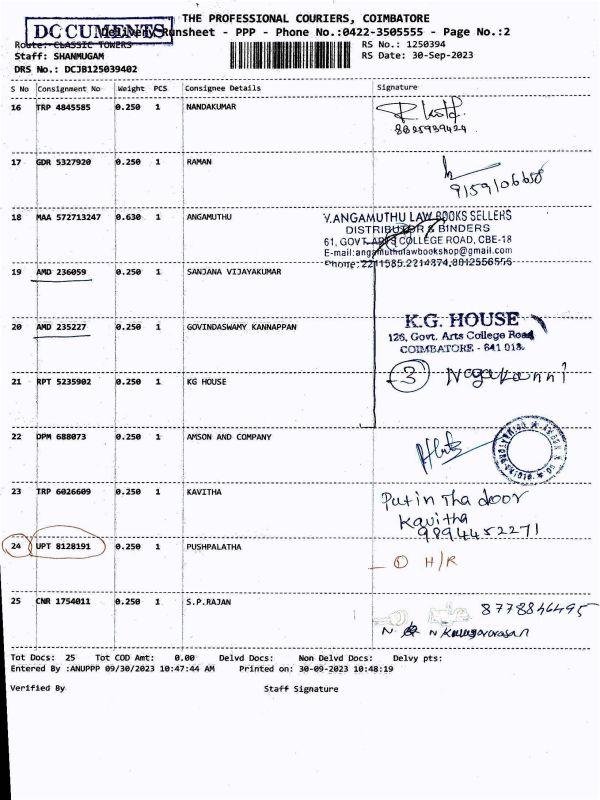 THE PROFESSIONAL COURIERS, COIMBATORE
DOCUMENTS
Delivery Runsheet - PPP - Phone No.:0422-3505555 - Page No.:2
Route: CLASSIC TOWERS
RS No.: 1250394
Staff: SHANMUGAM
RS Date: 30-Sep-2023
DRS No.: DCJB125039402
S No Consignment No Weight PCS Consignee Details Signature
16 TRP 4845585 0.250 1 NANDAKUMAR
8825939424
17 GDR 5327920 0.250 1 RAMAN
9159106658
18 MAA 572713247 0.630 1 ANGAMUTHU
V.ANGAMUTHU LAW BOOKS SELLERS
DISTRIBUTOR & BINDERS
61, GOVT. ARTS COLLEGE ROAD, CBE-18
E-mail:angamuthulawbookshop@gmail.com
Phone: 2211585.2214874,8012556556
19 AMD 236059 0.250 1 SANJANA VIJAYAKUMAR
20 AMD 235227 0.250 1 GOVINDASWAMY KANNAPPAN
K.G. HOUSE
126, Govt. Arts College Road
COIMBATORE - 641 018.
21 RPT 5235902 0.250 1 KG HOUSE
3 Nagakanni
22 DPM 688073 0.250 1 AMSON AND COMPANY
23 TRP 6026609 0.250 1 KAVITHA
Put in Tha door
Kavitha
9894452271
24 UPT 8128191 0.250 1 PUSHPALATHA
① H/R
25 CNR 1754011 0.250 1 S.P.RAJAN
8778846495
Tot Docs: 25 Tot COD Amt: 0.00 Delvd Docs: Non Delvd Docs: Delvy pts:
Entered By :ANUPPP 09/30/2023 10:47:44 AM Printed on: 30-09-2023 10:48:19
Verified By Staff Signature